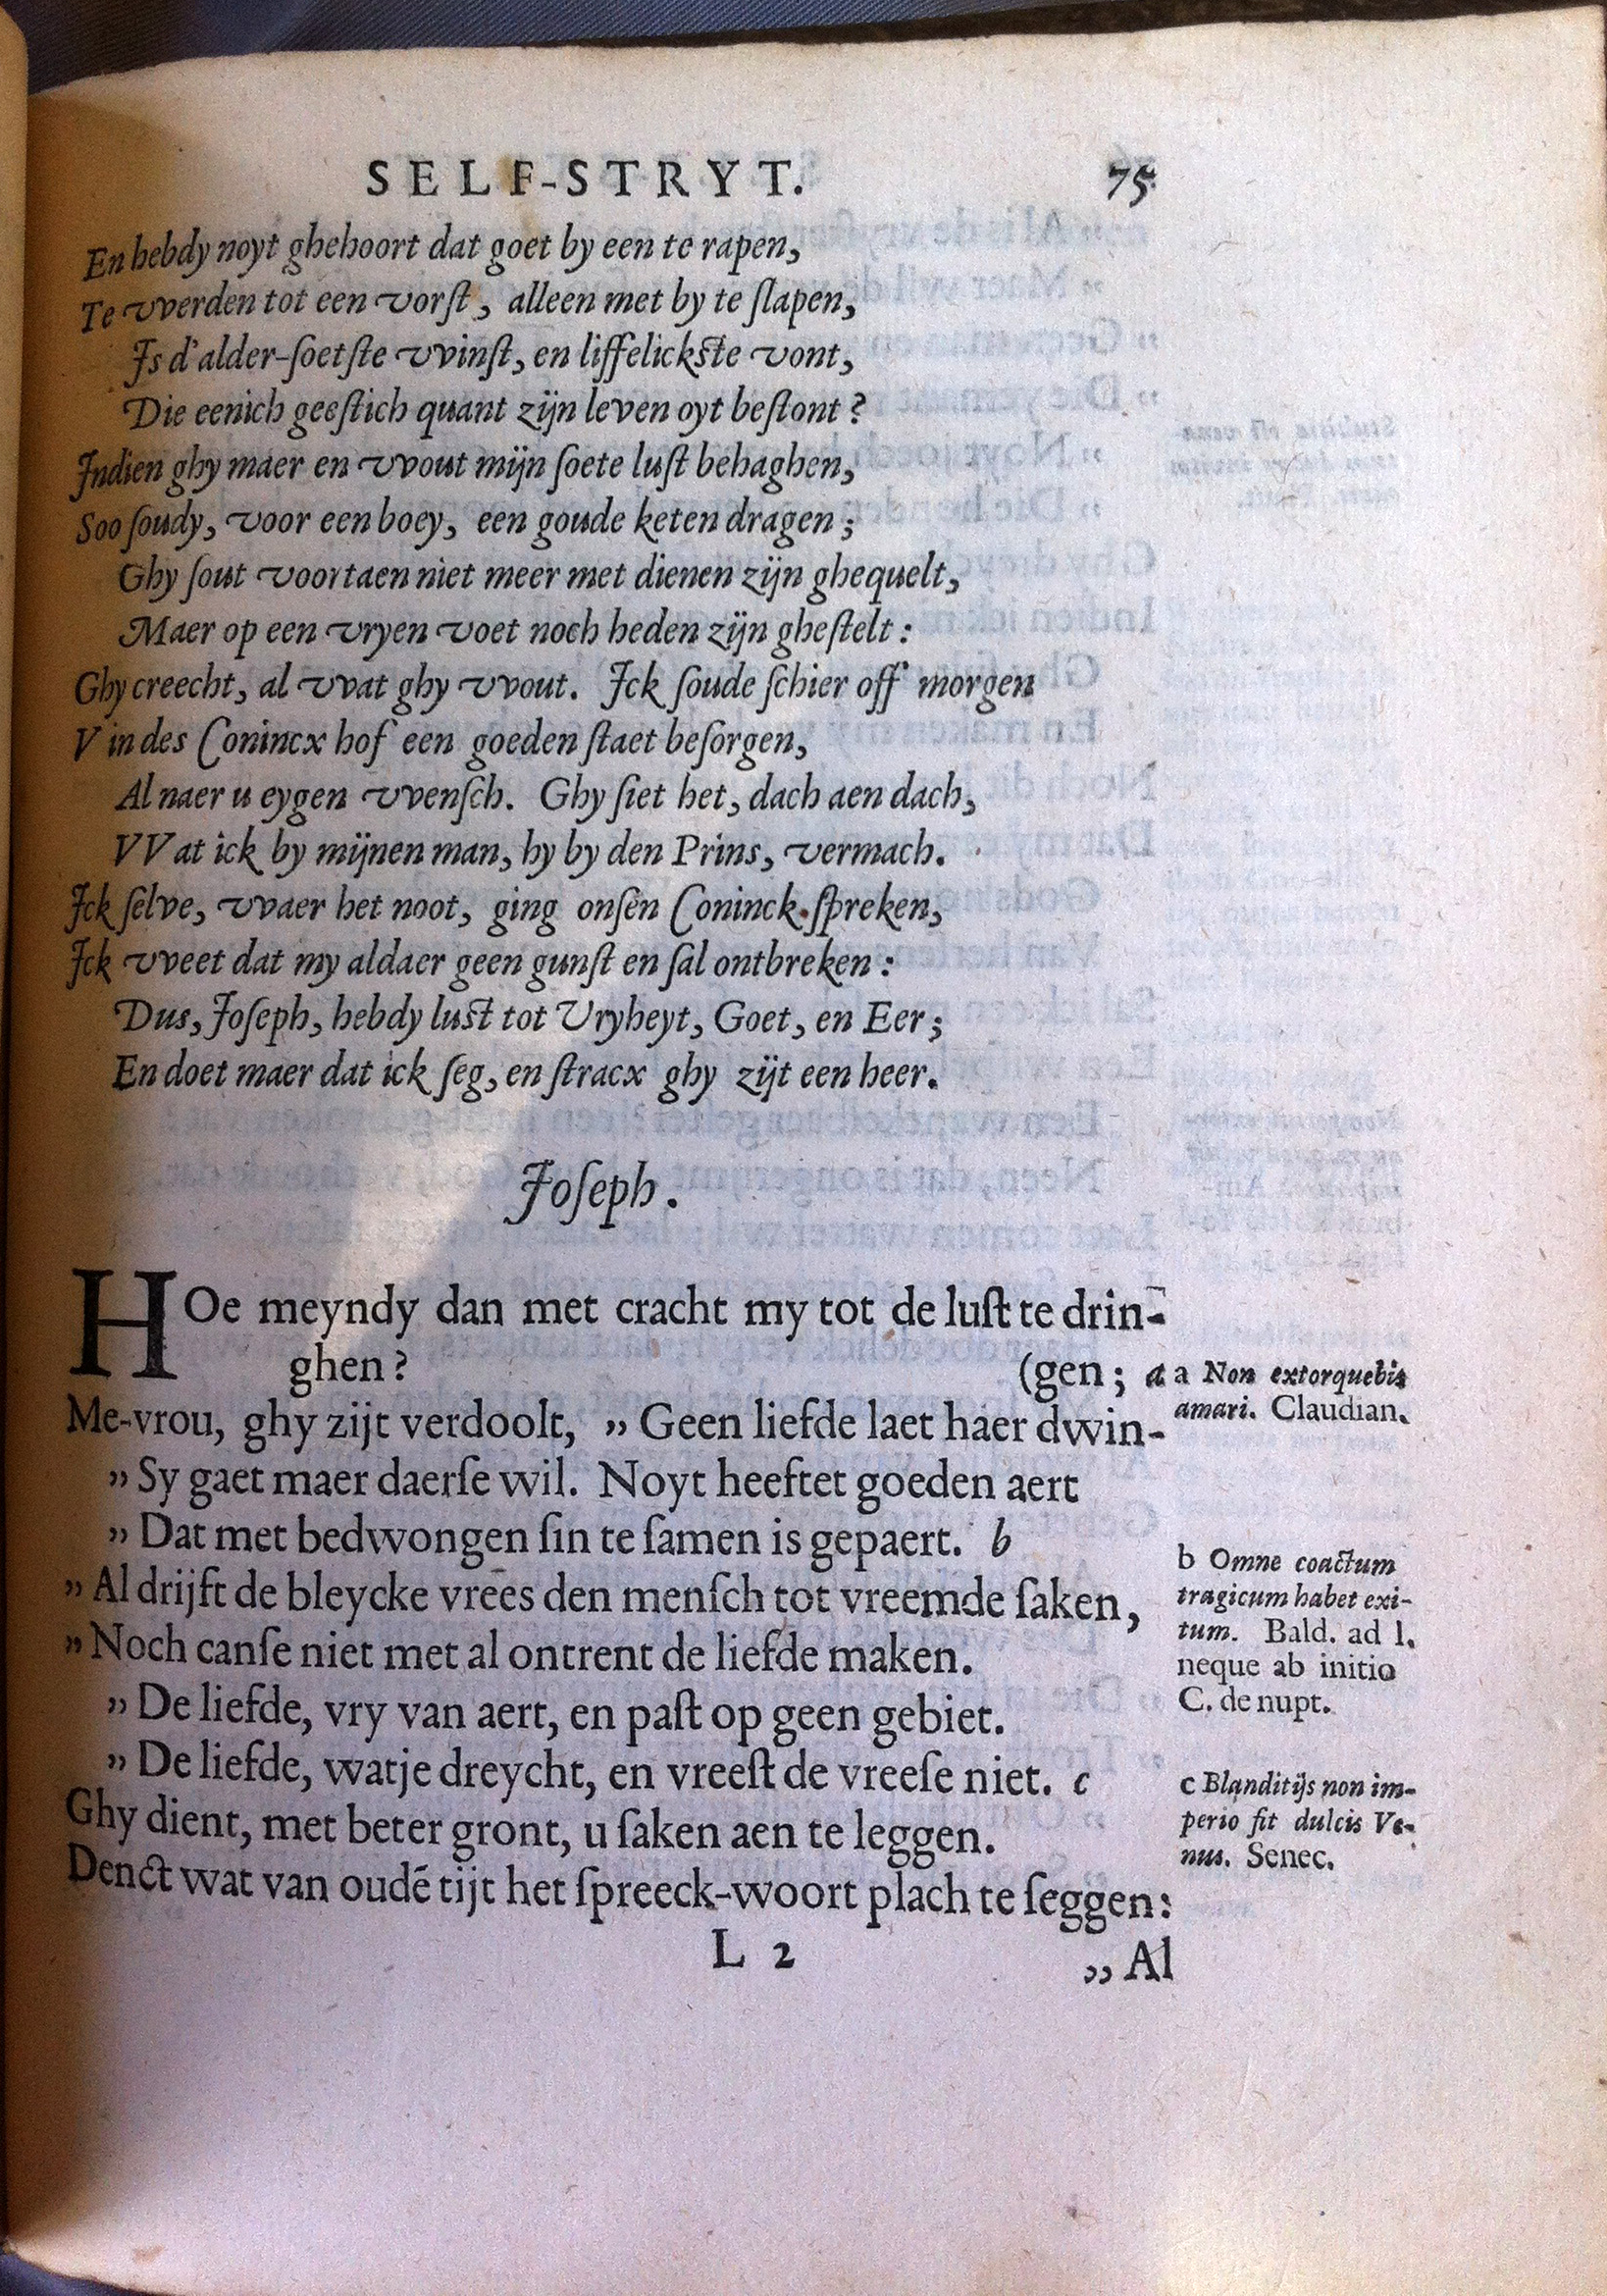 SELF-STRYT. 75
En hebdy noyt ghehoort dat goet by een te rapen,
Te vverden tot een vorſt, alleen met by te ſlapen,
Is d'alder-ſoetſte vvinſt, en liffelickſte vont,
Die eenich geeſtich quant zijn leven oyt beſtont?
Indien ghy maer en vvout mijn ſoete luſt behaghen,
Soo ſoudy, voor een boey, een goude keten dragen;
Ghy ſout voortaen niet meer met dienen zijn ghequelt,
Maer op een vryen voet noch heden zijn gheſtelt:
Ghy creecht, al vvat ghy vvout. Ick ſoude ſchier off morgen
V in des Conincx hof een goeden ſtaet beſorgen,
Al naer u eygen vvenſch. Ghy ſiet het, dach aen dach,
VVat ick by mijnen man, hy by den Prins, vermach.
Ick ſelve, vvaer het noot, ging onſen Coninck ſpreken,
Ick vveet dat my aldaer geen gunſt en ſal ontbreken:
Dus, Joſeph, hebdy luſt tot Vryheyt, Goet, en Eer;
En doet maer dat ick ſeg, en ſtracx ghy zijt een heer.
Joſeph.
HOe meyndy dan met cracht my tot de luſt te drin-
ghen? (gen; a
Me-vrou, ghy zijt verdoolt, „ Geen liefde laet haer dwin-
„ Sy gaet maer daerſe wil. Noyt heeftet goeden aert
„ Dat met bedwongen ſin te ſamen is gepaert. b
„ Al drijft de bleycke vrees den menſch tot vreemde ſaken,
„ Noch canſe niet met al ontrent de liefde maken.
„ De liefde, vry van aert, en paſt op geen gebiet.
„ De liefde, watje dreycht, en vreeſt de vreeſe niet. c
Ghy dient, met beter gront, u ſaken aen te leggen.
Denct wat van oudē tijt het ſpreeck-woort plach te ſeggen:
L 2 „ Al
a Non extorquebis
amari. Claudian.
b Omne coactum
tragicum habet exi-
tum. Bald. ad l.
neque ab initio
C. de nupt.
c Blanditijs non im-
perio fit dulcis Ve-
nus. Senec.